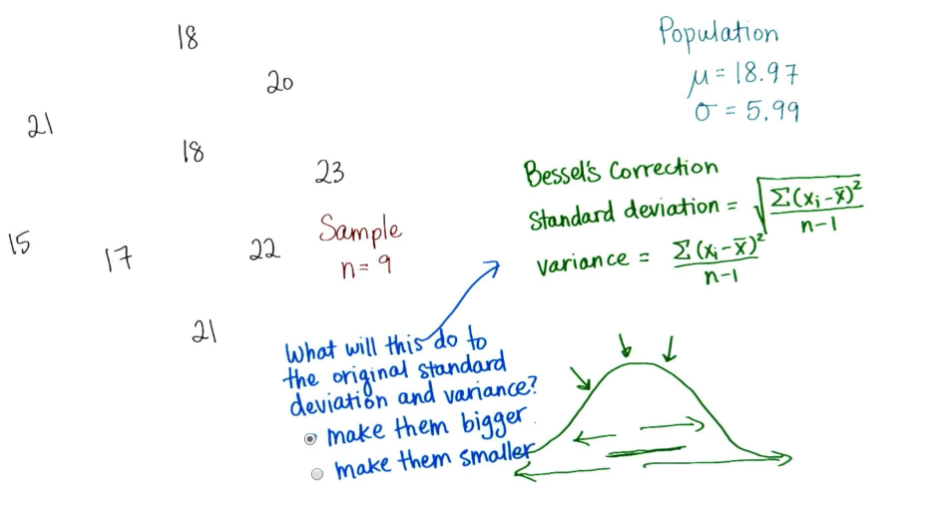 18
20
21
18
23
15
17
22
21
Sample
n = 9
Population
μ = 18.97
σ = 5.99
Bessel's Correction
Standard deviation = √(Σ(xᵢ-x̄)²/(n-1))
variance = Σ(xᵢ-x̄)²/(n-1)
What will this do to
the original standard
deviation and variance?
make them bigger
make them smaller